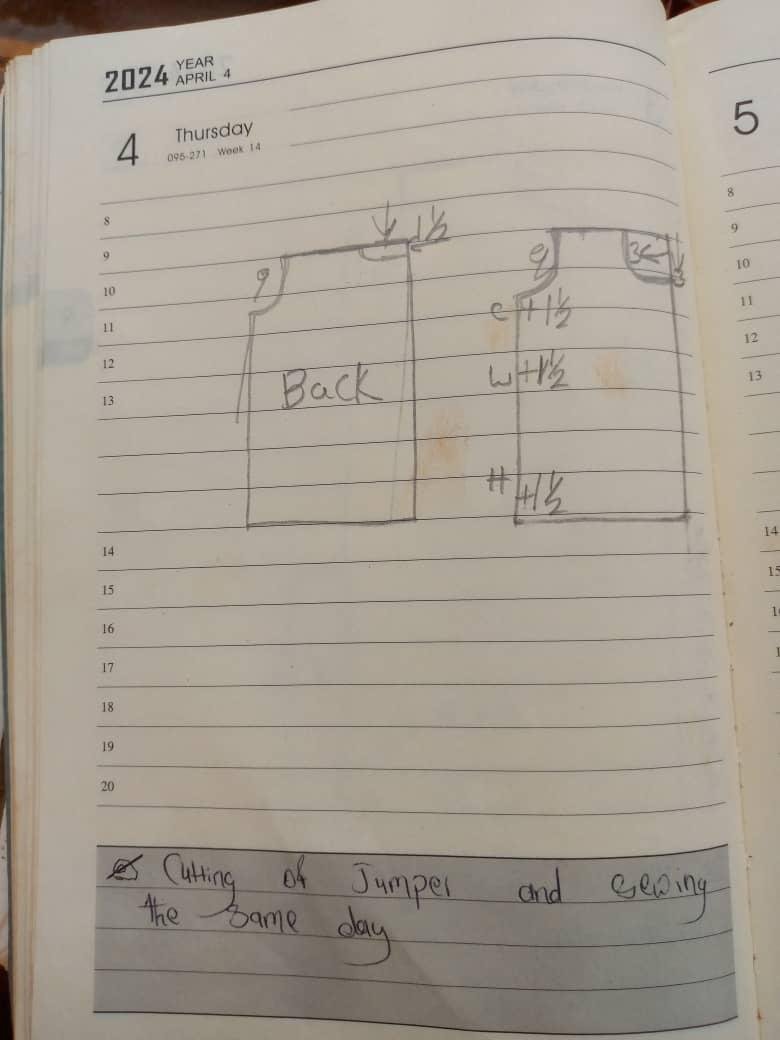 2024 YEAR
APRIL 4
4 Thursday
095-271 Week 14
5
8
9
10
11
12
13
14
15
16
17
18
19
20
1 1/2
9
Back
9
3
3
C +1 1/2
W +1 1/2
H +1 1/2
Cutting of Jumper and sewing
the same day
8
9
10
11
12
13
14
15